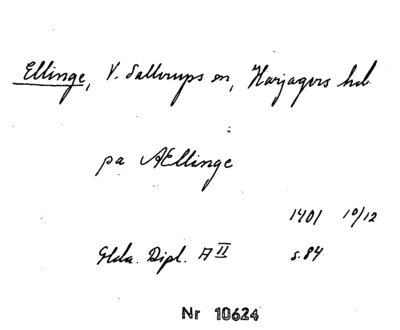 Ellinge, V. Sallerups sn, Harjagers hd
pa Ællinge
1401 10/12
Glda. Dipl. A II s. 84
Nr 10624